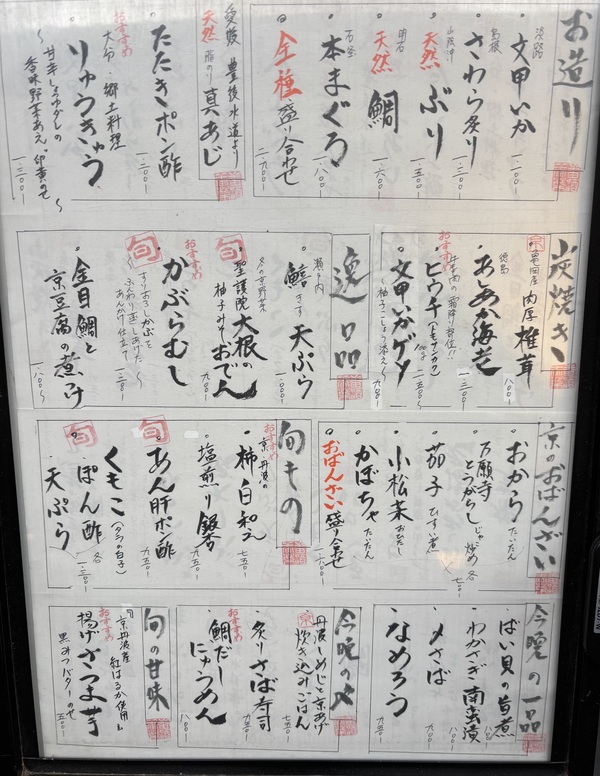 お造り
淡路
文甲いか
一、二〇〇-
島根
さわら炙り
一、三〇〇-
天然ぶり
一、五〇〇-
明石
天然鯛
一、六〇〇-
本まぐろ
一、八〇〇-
全種盛り合わせ
二、九〇〇-
愛媛 豊後水道より
天然 脂のり 真あじ
たたきポン酢
おすすめ
大分・郷土料理
りゅうきゅう
〜甘辛しょうゆダレの
香味野菜あえ。卵黄のせ〜
一、三〇〇-
炭焼き
亀岡産
肉厚椎茸
八〇〇-
徳島
あしあか海老
一、三〇〇-
おすすめ
牛半肉の霜降り部位!!
ヒウチ(トモサンカク)
100g
一、五〇〇-
文甲いかゲソ
〜柚子こしょう添え〜
九八〇-
逸品
瀬戸内
鱚 きす 天ぷら
一、〇〇〇-
冬の京野菜
旬
聖護院大根の
柚子みそおでん
九〇〇-
おすすめ
旬
かぶらむし
〜すりおろしかぶを
ふんわり蒸しあげた
あんかけ仕立て〜
一、二〇〇-
金目鯛と
京豆腐の煮つけ
一、八〇〇-
京のおばんざい
おから たいたん
万願寺
とうがらし じゃこ炒め
各
七〇〇-
茄子 ひすい煮
小松菜 おひたし
かぼちゃ たいたん
おばんざい盛り合せ
一、六〇〇-
旬もの
おすすめ
京・丹波の
柿白和え
七五〇-
塩煎り銀杏
九五〇-
旬
あん肝ポン酢
九五〇-
くもこ (タラの白子)
旬
ぽん酢
天ぷら
各
一、三〇〇-
今晩の一品
ばい貝の旨煮
八〇〇-
わかさぎ南蛮漬
八〇〇-
〆さば
九〇〇-
なめろう
九五〇-
今晩の〆
丹波しめじと京あげ
炊き込みごはん
七五〇-
炙りさば寿司
九五〇-
おすすめ
鯛だし
にゅうめん
八〇〇-
旬の甘味
『京丹波産
紅はるか使用』
おすすめ
揚げさつま芋
黒みつバターのせ
五〇〇-